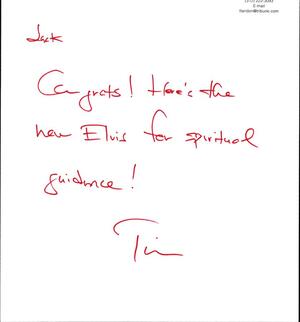 E-mail
Jack
Congrats! Here's the
new Elvis for spiritual
guidance!
Tim